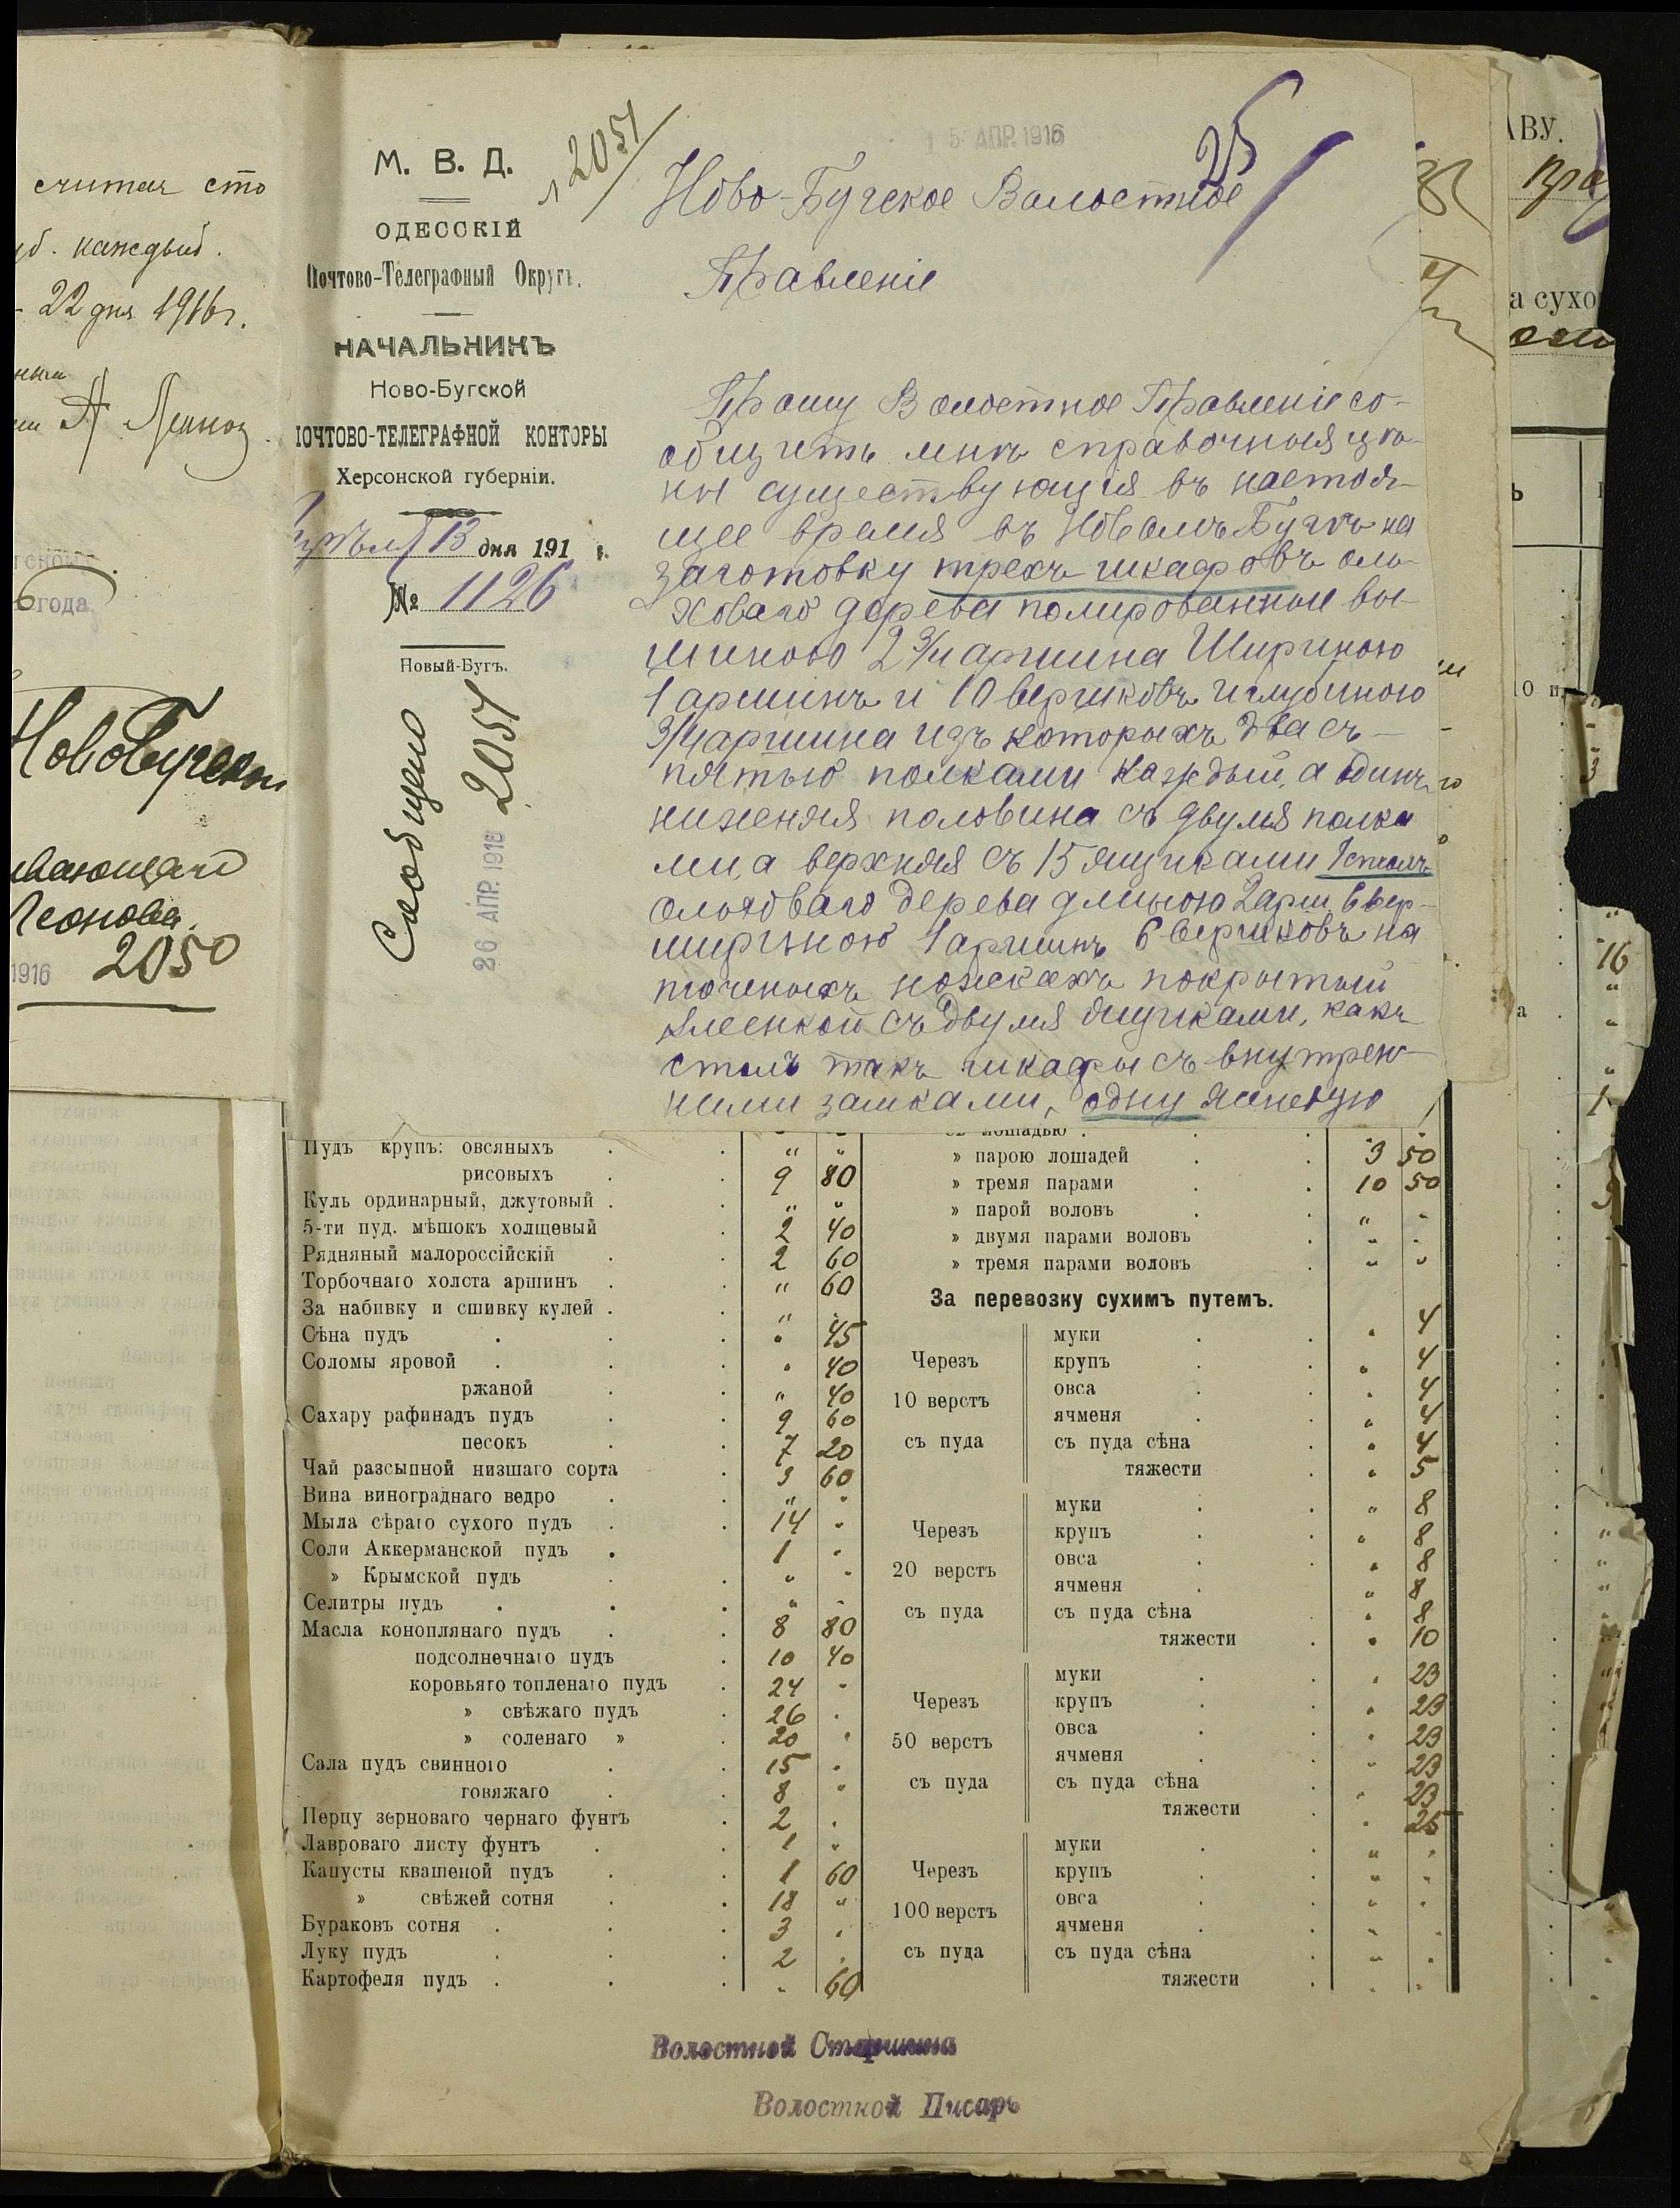 считая сто
каждый.
22 дня 1916 г.
года
НовоБугской
Леонова.
1916 2050
М. В. Д.
ОДЕССКІЙ
Почтово-Телеграфный Округъ.
НАЧАЛЬНИКЪ
Ново-Бугской
ПОЧТОВО-ТЕЛЕГРАФНОЙ КОНТОРЫ
Херсонской губерніи.
13 дня 191 г.
№ 1126
Новый-Бугъ.
Сообщено
26 АПР. 1916 2051
л 2051
15 АПР. 1916
25
Ново-Бугское Волостное
Правленіе
Прошу Волостное Правленіе со-
общить мнѣ справочныя цѣ-
ны существующія въ настоя-
щее время въ Новомъ Бугѣ на
заготовку трехъ шкафовъ оль-
ховаго дерева полированные вы-
шиною 2 3/4 аршина Шириною
1 аршинъ и 10 вершковъ и глубиною
3/4 аршина изъ которыхъ два съ
пятью полками каждый, а одинъ
нижняя половина съ двумя полка
ми, а верхняя съ 15 ящиками 1 столъ
ольховаго дерева длиною 2 арш 6 вер-
шириною 1 аршинъ 6 вершковъ на
точеныхъ ножкахъ покрытый
клеенкой съ двумя ящиками, какъ
столъ такъ шкафы съ внутрен-
ними замками, одну ясневую
Пудъ крупъ: овсяныхъ . . " "
рисовыхъ . . 9 80
Куль ординарный, джутовый . . " "
5-ти пуд. мѣшокъ холщевый . 2 40
Рядняный малороссійскій . . 2 60
Торбочнаго холста аршинъ . . " 60
За набивку и сшивку кулей . . " .
Сѣна пудъ . . . " 45
Соломы яровой . . . " 40
ржаной . . " 40
Сахару рафинадъ пудъ . . 9 60
песокъ . . 7 20
Чай разсыпной низшаго сорта . 3 60
Вина винограднаго ведро . . " "
Мыла сѣраго сухого пудъ . . 14 "
Соли Аккерманской пудъ . . 1 "
» Крымской пудъ . . " "
Селитры пудъ . . . " "
Масла коноплянаго пудъ . . 8 80
подсолнечнаго пудъ . 10 40
коровьяго топленаго пудъ . 24 "
» свѣжаго пудъ . 26 "
» соленаго » . 20 "
Сала пудъ свинного . . 15 "
говяжаго . . 8 "
Перцу зерноваго чернаго фунтъ . 2 "
Лавроваго листу фунтъ . . 1 "
Капусты квашеной пудъ . . 1 60
» свѣжей сотня . . 18 "
Бураковъ сотня . . . 3 "
Луку пудъ . . . 2 "
Картофеля пудъ . . . " 60
съ лошадью . . .
» парою лошадей . . 3 50
» тремя парами . . 10 50
» парой воловъ . . " "
» двумя парами воловъ . " "
» тремя парами воловъ . " "
За перевозку сухимъ путемъ.
Черезъ
10 верстъ
съ пуда
муки . . " 4
крупъ . . " 4
овса . . " 4
ячменя . . " 4
съ пуда сѣна . " 4
тяжести . " 5
Черезъ
20 верстъ
съ пуда
муки . . " 8
крупъ . . " 8
овса . . " 8
ячменя . . " 8
съ пуда сѣна . " 8
тяжести . " 10
Черезъ
50 верстъ
съ пуда
муки . . " 23
крупъ . . " 23
овса . . " 23
ячменя . . " 23
съ пуда сѣна . " 23
тяжести . " 25
Черезъ
100 верстъ
съ пуда
муки . . " "
крупъ . . " "
овса . . " "
ячменя . . " "
съ пуда сѣна . " "
тяжести . " "
Волостной Старшина
Волостной Писарь
АВУ.
а сухо
16